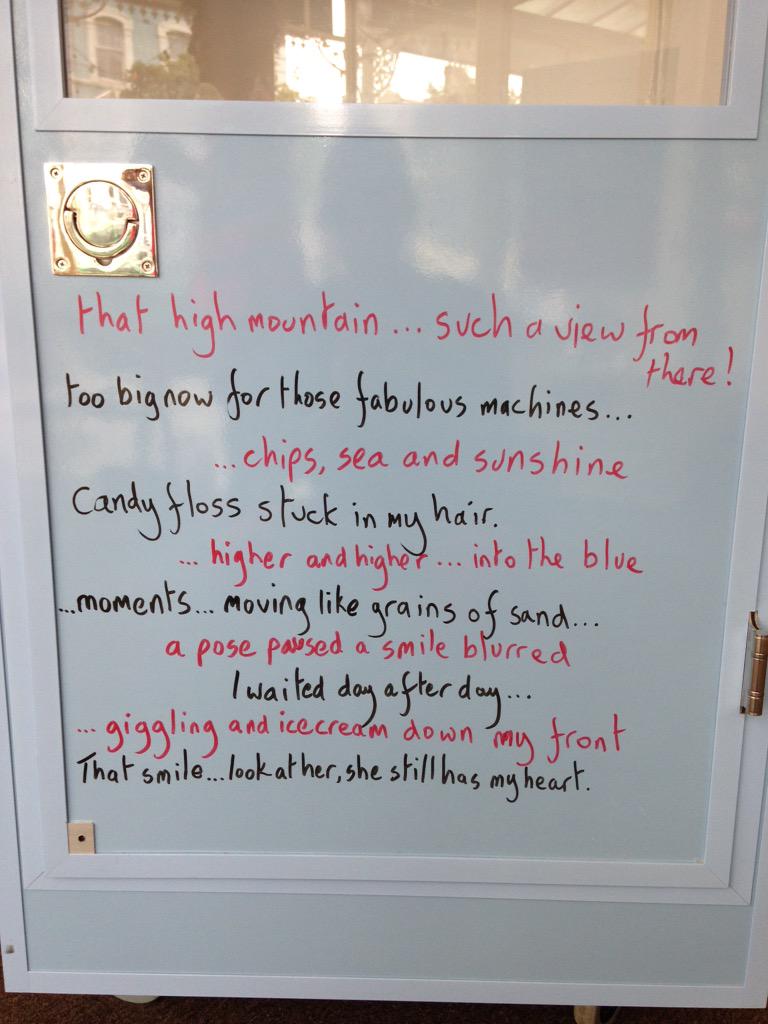 that high mountain ... such a view from
there!
too big now for those fabulous machines...
...chips, sea and sunshine
Candy floss stuck in my hair.
... higher and higher ... into the blue
...moments... moving like grains of sand...
a pose paused a smile blurred
I waited day after day...
... giggling and icecream down my front
That smile...look at her, she still has my heart.